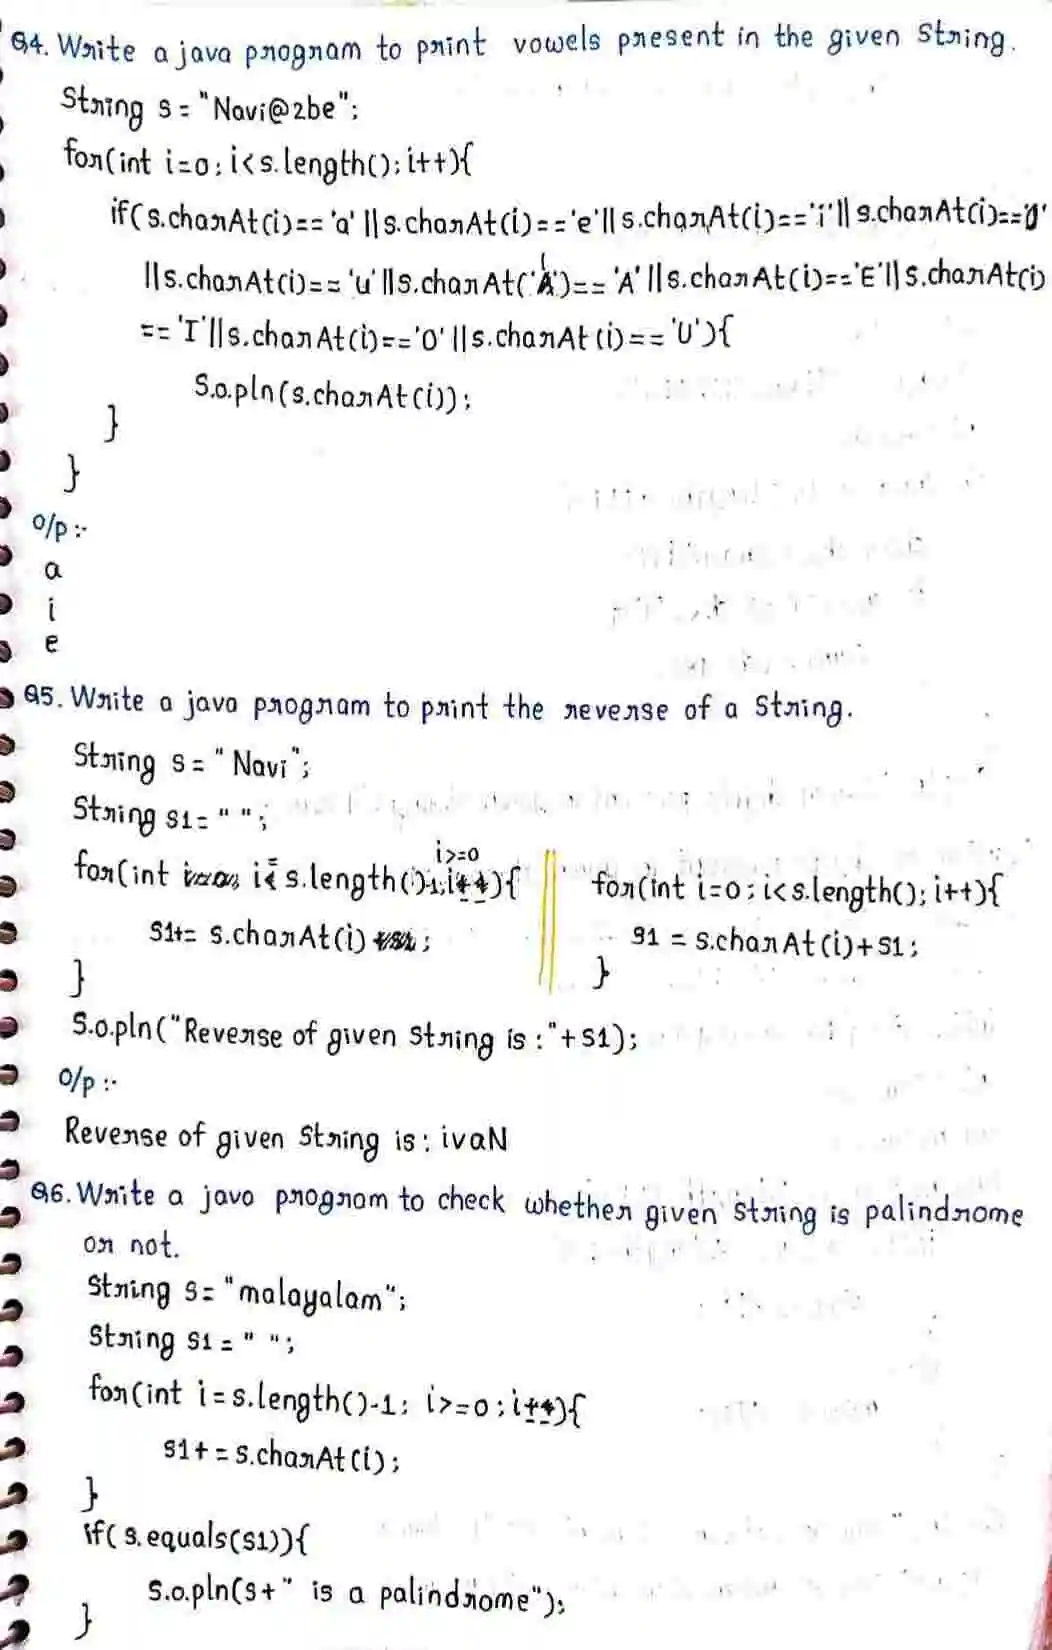 Q4. Write a java program to print vowels present in the given String.
String s = "Navi@2be";
for(int i=0; i<s.length(); i++){
if(s.charAt(i)== 'a' || s.charAt(i)=='e'|| s.charAt(i)=='i'|| s.charAt(i)=='o'
|| s.charAt(i)== 'u' || s.charAt(i)== 'A' || s.charAt(i)=='E'|| s.charAt(i)
== 'I' || s.charAt(i)=='O' || s.charAt(i)== 'U'){
S.o.pln(s.charAt(i));
}
}
O/p :-
a
i
e
Q5. Write a java program to print the reverse of a String.
String s = "Navi";
String s1= " ";
for(int i= s.length()-1; i>=0 i--){
s1+= s.charAt(i);
}
for(int i=0; i<s.length(); i++){
s1 = s.charAt(i)+s1;
}
S.o.pln("Reverse of given String is :"+s1);
O/p :-
Reverse of given String is: ivaN
Q6. Write a java program to check whether given String is palindrome
or not.
String s= "malayalam";
String s1 = " ";
for(int i=s.length()-1; i>=0; i--){
s1+= s.charAt(i);
}
if(s.equals(s1)){
S.o.pln(s+" is a palindrome");
}